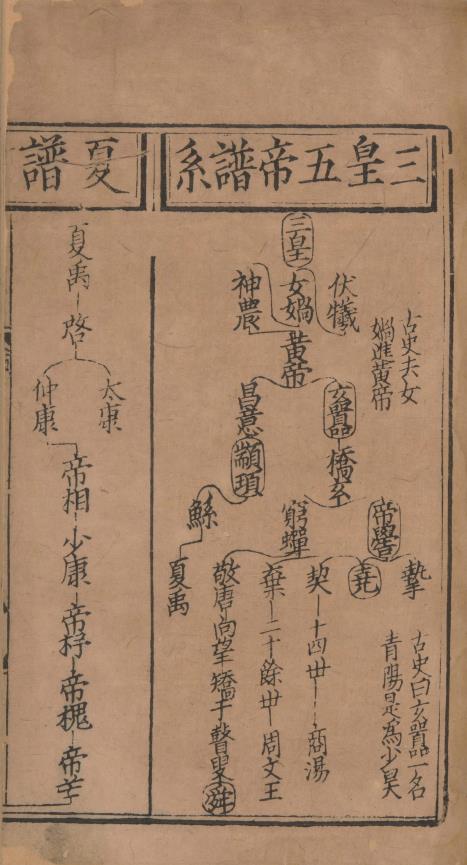 三皇五帝譜系
古史夫女
媧進黃帝
三皇
伏犧
女媧
神農
黃帝
玄囂
橋玄
帝嚳
昌意
顓頊
窮蟬
鯀
夏禹
摯
堯
契
十四世
商湯
棄
二十餘世
周文王
敬唐
向望
矯牛
瞽叟
舜
古史曰玄囂一名
青陽是為少昊
夏譜
夏禹
啓
太康
仲康
帝相
少康
帝杼
帝槐